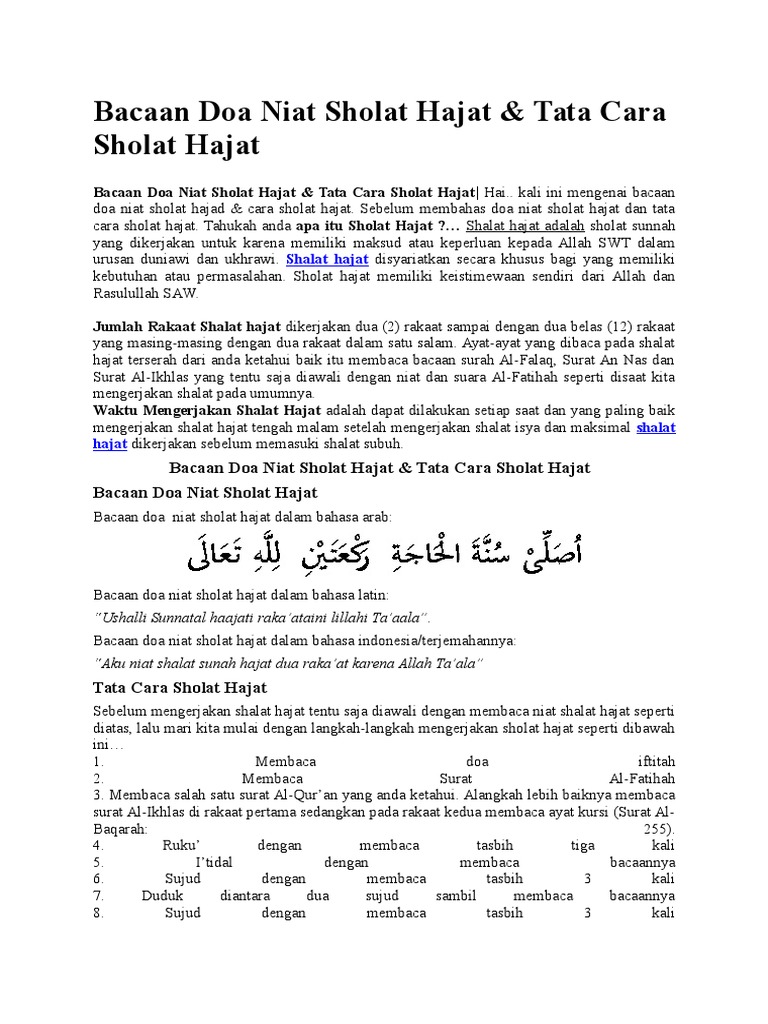 Bacaan Doa Niat Sholat Hajat & Tata Cara
Sholat Hajat
Bacaan Doa Niat Sholat Hajat & Tata Cara Sholat Hajat| Hai.. kali ini mengenai bacaan
doa niat sholat hajad & cara sholat hajat. Sebelum membahas doa niat sholat hajat dan tata
cara sholat hajat. Tahukah anda apa itu Sholat Hajat ?… Shalat hajat adalah sholat sunnah
yang dikerjakan untuk karena memiliki maksud atau keperluan kepada Allah SWT dalam
urusan duniawi dan ukhrawi. Shalat hajat disyariatkan secara khusus bagi yang memiliki
kebutuhan atau permasalahan. Sholat hajat memiliki keistimewaan sendiri dari Allah dan
Rasulullah SAW.
Jumlah Rakaat Shalat hajat dikerjakan dua (2) rakaat sampai dengan dua belas (12) rakaat
yang masing-masing dengan dua rakaat dalam satu salam. Ayat-ayat yang dibaca pada shalat
hajat terserah dari anda ketahui baik itu membaca bacaan surah Al-Falaq, Surat An Nas dan
Surat Al-Ikhlas yang tentu saja diawali dengan niat dan suara Al-Fatihah seperti disaat kita
mengerjakan shalat pada umumnya.
Waktu Mengerjakan Shalat Hajat adalah dapat dilakukan setiap saat dan yang paling baik
mengerjakan shalat hajat tengah malam setelah mengerjakan shalat isya dan maksimal shalat
hajat dikerjakan sebelum memasuki shalat subuh.
Bacaan Doa Niat Sholat Hajat & Tata Cara Sholat Hajat
Bacaan Doa Niat Sholat Hajat
Bacaan doa  niat sholat hajat dalam bahasa arab:
اُصَلِّىْ سُنَّةَ الْحَاجَةِ رَكْعَتَيْنِ لِلَّهِ تَعَالَى
Bacaan doa niat sholat hajat dalam bahasa latin:
"Ushalli Sunnatal haajati raka'ataini lillahi Ta'aala".
Bacaan doa niat sholat hajat dalam bahasa indonesia/terjemahannya:
"Aku niat shalat sunah hajat dua raka'at karena Allah Ta'ala"
Tata Cara Sholat Hajat
Sebelum mengerjakan shalat hajat tentu saja diawali dengan membaca niat shalat hajat seperti
diatas, lalu mari kita mulai dengan langkah-langkah mengerjakan sholat hajat seperti dibawah
ini…
1. Membaca doa iftitah
2. Membaca Surat Al-Fatihah
3. Membaca salah satu surat Al-Qur'an yang anda ketahui. Alangkah lebih baiknya membaca
surat Al-Ikhlas di rakaat pertama sedangkan pada rakaat kedua membaca ayat kursi (Surat Al-
Baqarah: 255).
4. Ruku' dengan membaca tasbih tiga kali
5. I'tidal dengan membaca bacaannya
6. Sujud dengan membaca tasbih 3 kali
7. Duduk diantara dua sujud sambil membaca bacaannya
8. Sujud dengan membaca tasbih 3 kali